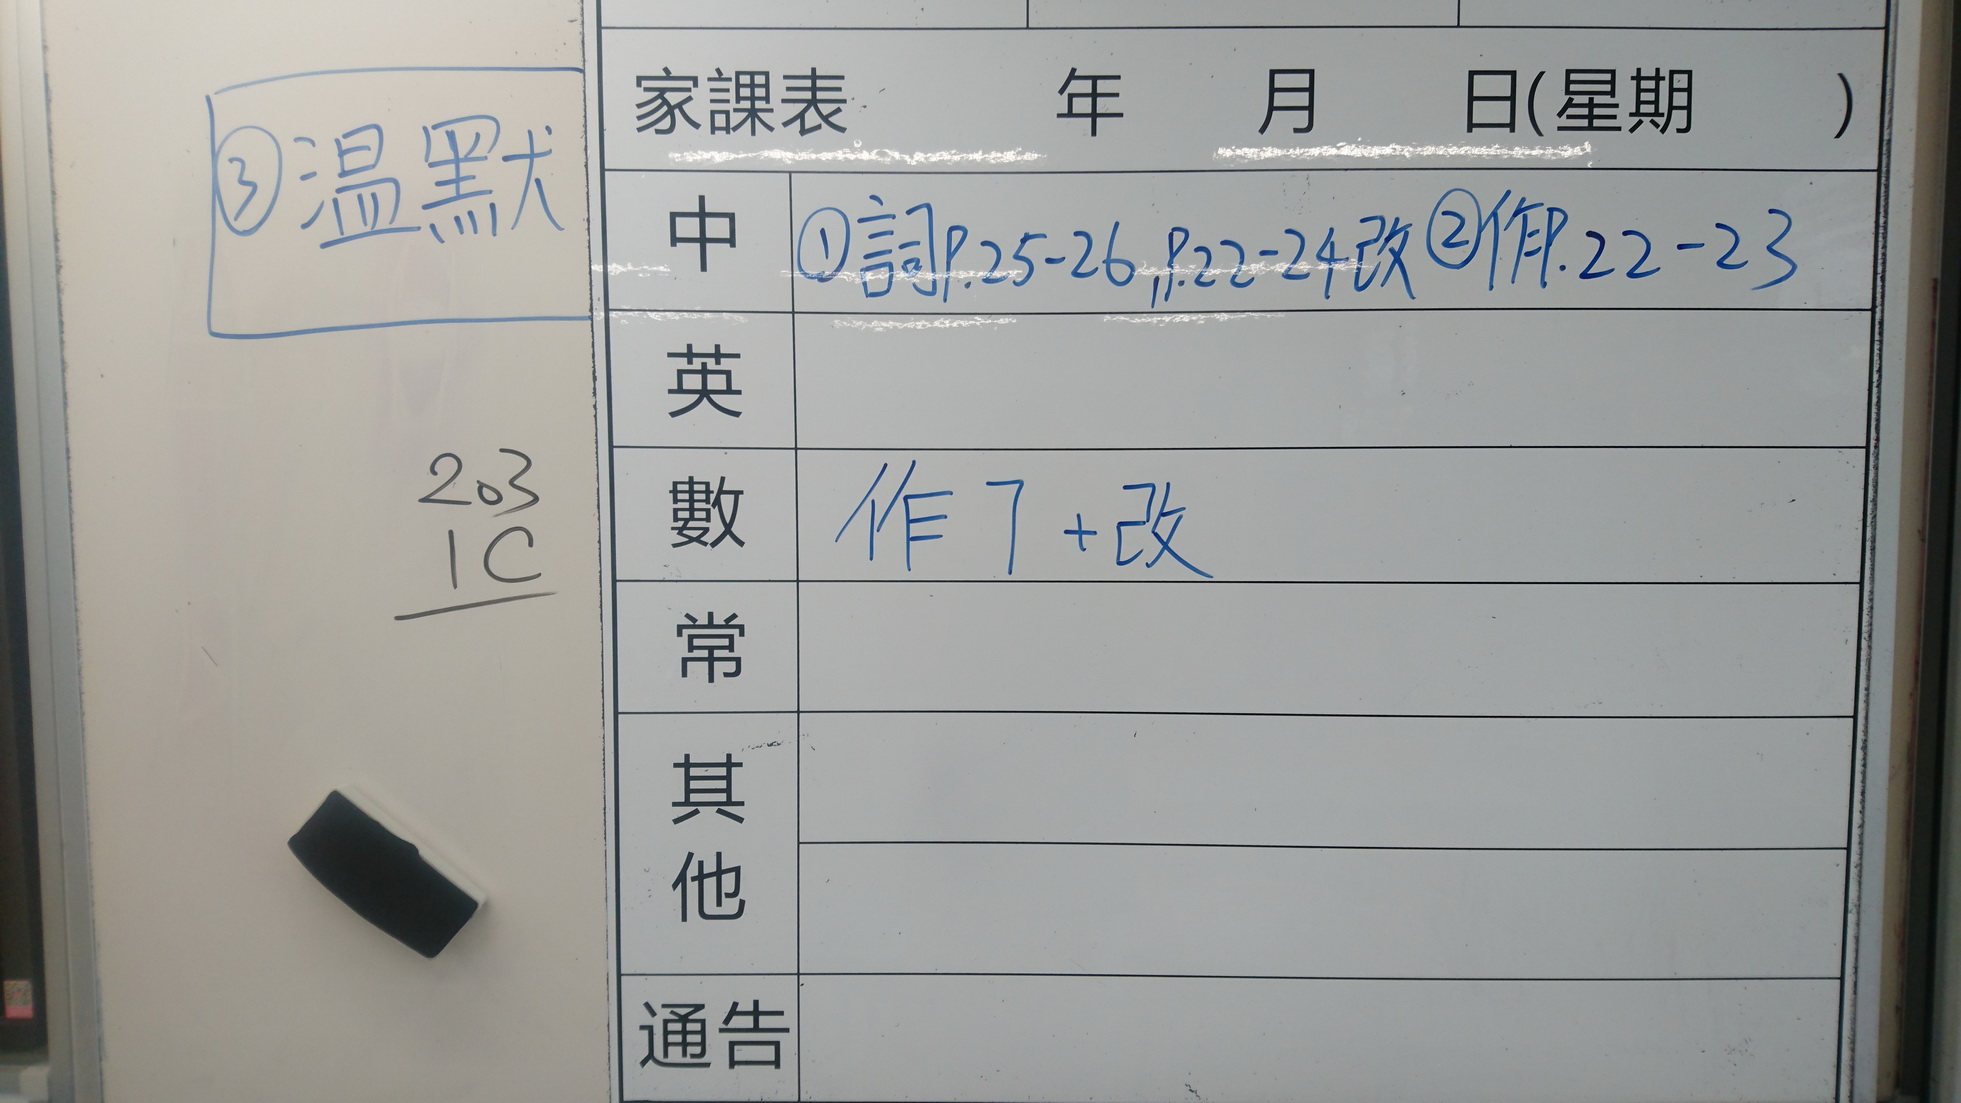 家課表 年 月 日(星期 )
③溫默
中 ①詞P.25-26,P.22-24改 ②作P.22-23
英
數 作7+改
203
1C
常
其他
通告